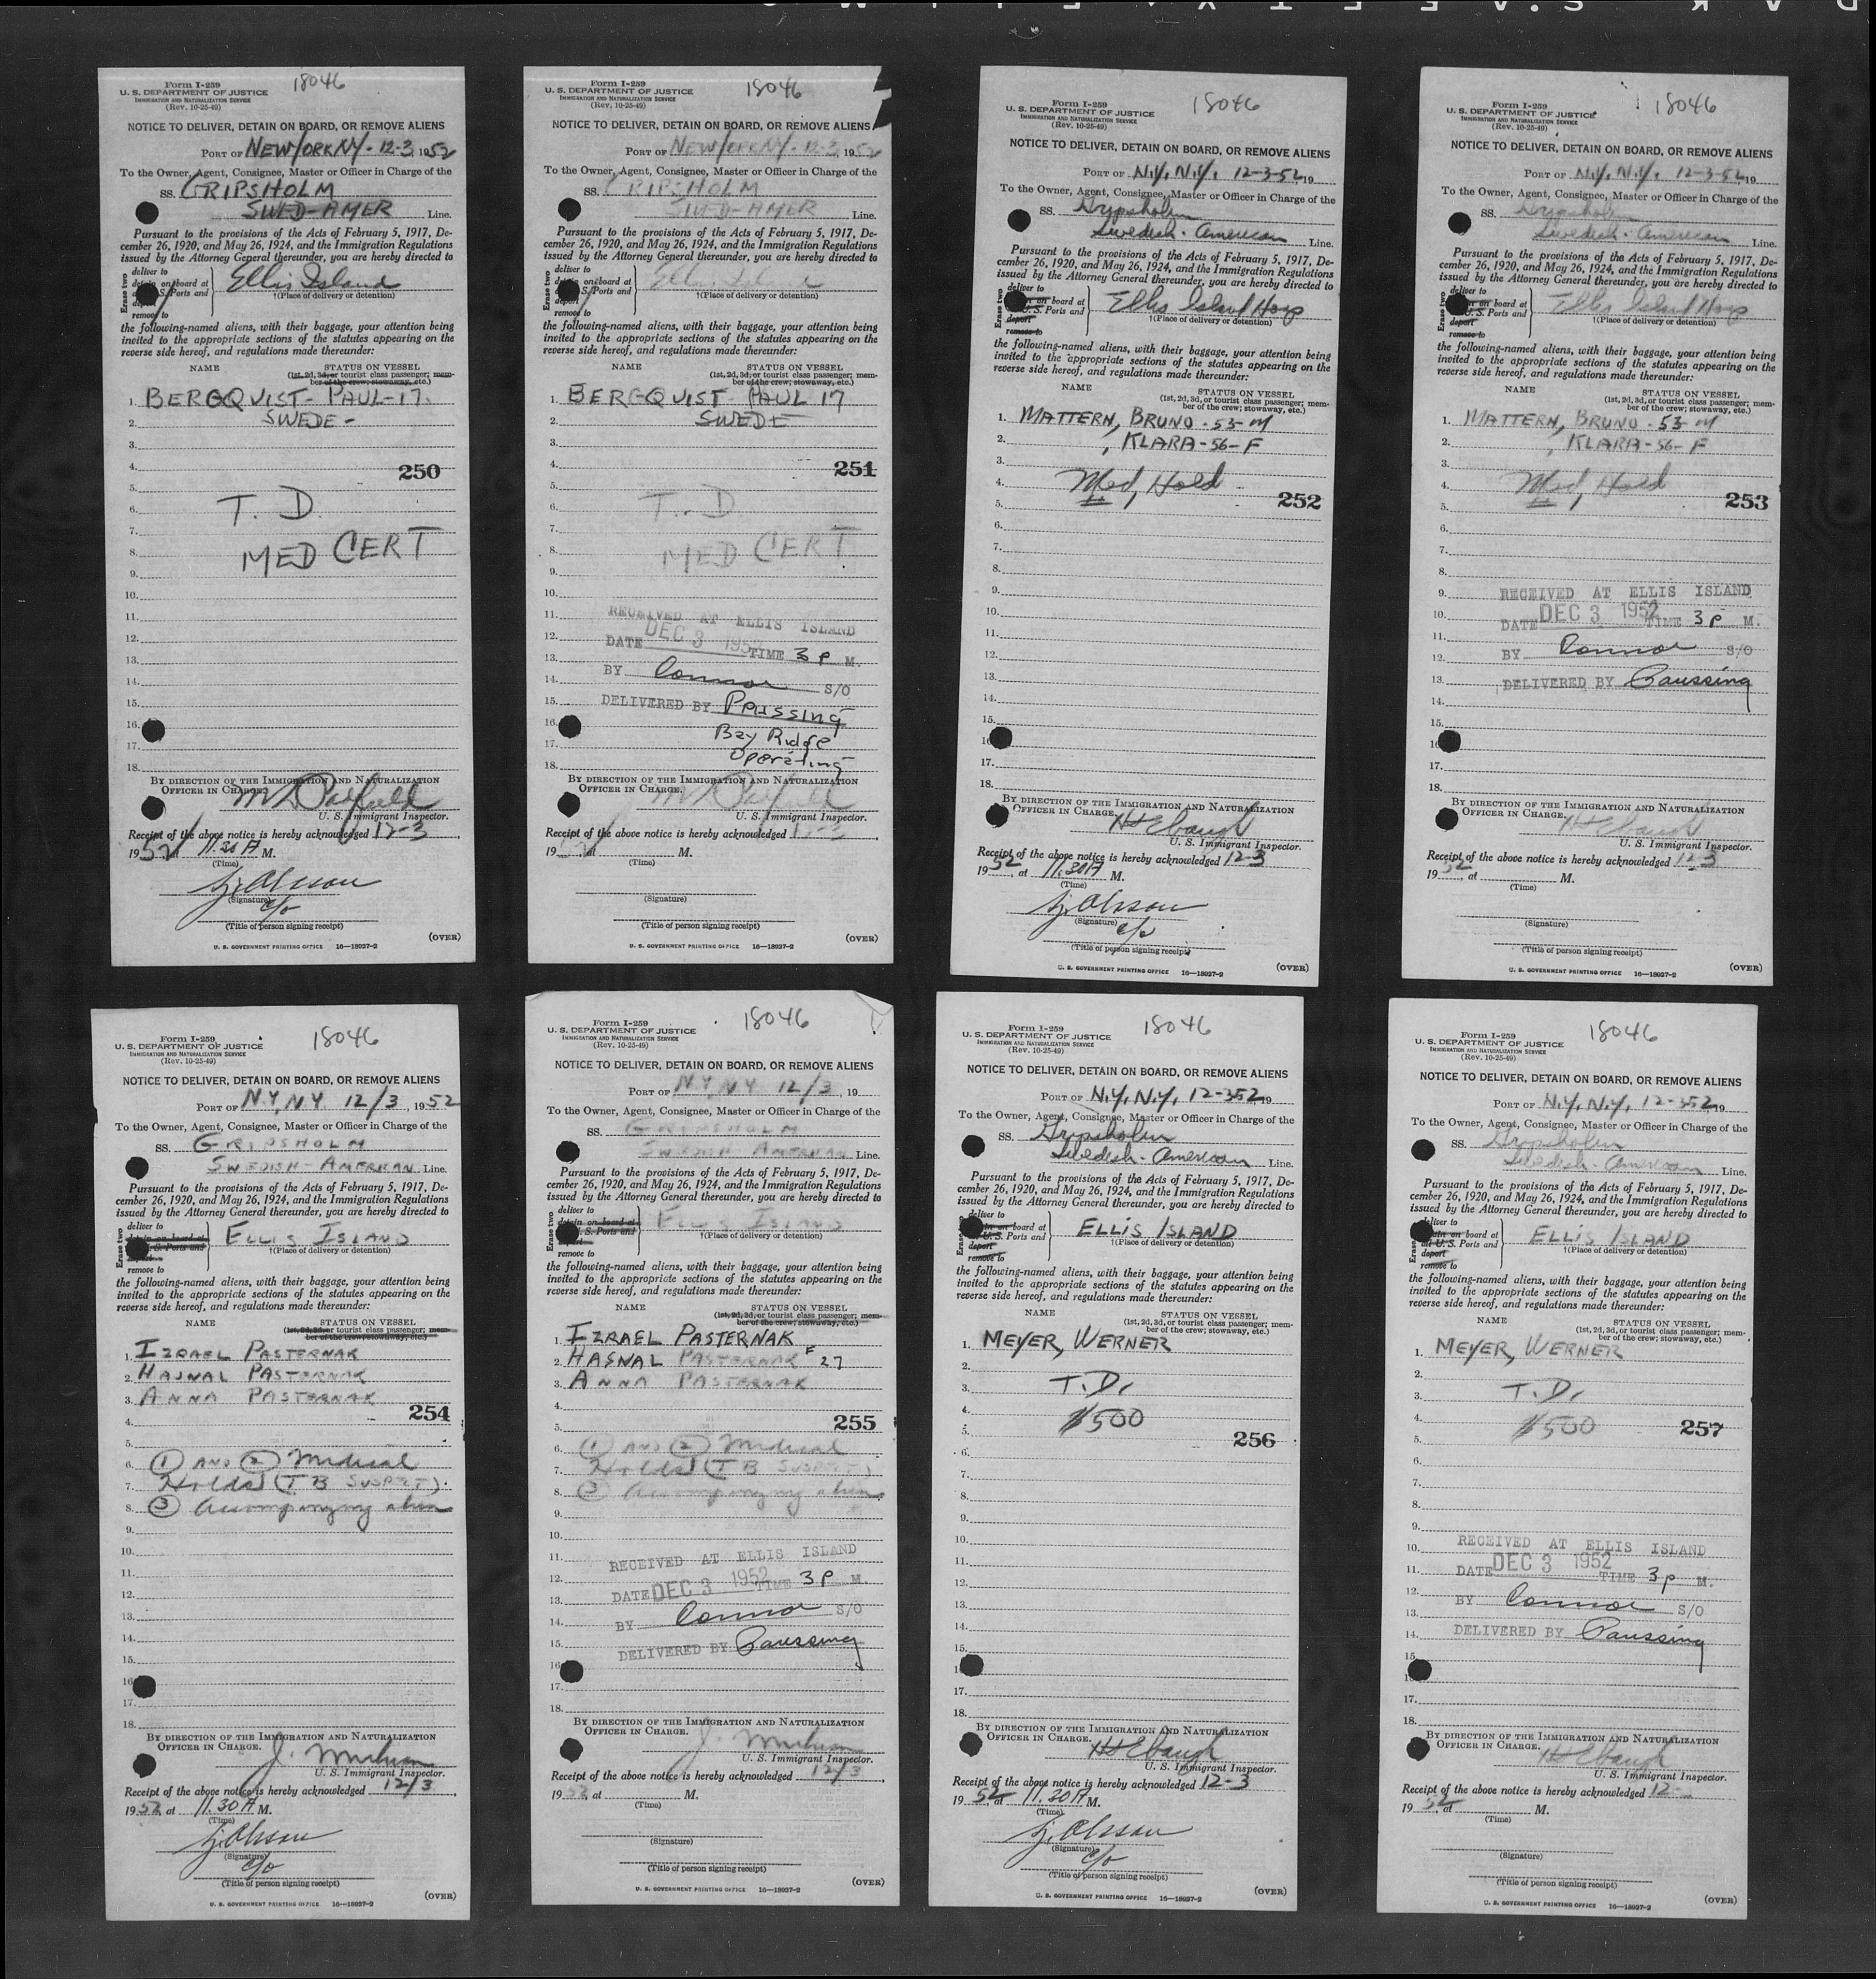 Form I-259
18046
U. S. DEPARTMENT OF JUSTICE
IMMIGRATION AND NATURALIZATION SERVICE
(Rev. 10-25-49)
NOTICE TO DELIVER, DETAIN ON BOARD, OR REMOVE ALIENS
PORT OF NEW YORK NY - 12-3, 1952
To the Owner, Agent, Consignee, Master or Officer in Charge of the
SS. GRIPSHOLM
SWED-AMER Line.
Pursuant to the provisions of the Acts of February 5, 1917, De-
cember 26, 1920, and May 26, 1924, and the Immigration Regulations
issued by the Attorney General thereunder, you are hereby directed to
Erase two
deliver to
on board at
S. Ports and
remove to
Ellis Island
†(Place of delivery or detention)
the following-named aliens, with their baggage, your attention being
invited to the appropriate sections of the statutes appearing on the
reverse side hereof, and regulations made thereunder:
NAME STATUS ON VESSEL
(1st, 2d, 3d, or tourist class passenger; mem-
ber of the crew; stowaway, etc.)
1. BERGQVIST - PAUL - 17.
2. SWEDE -
3.
4. 250
5.
6. T. D.
7.
8. MED CERT
9.
10.
11.
12.
13.
14.
15.
16.
17.
18.
BY DIRECTION OF THE IMMIGRATION AND NATURALIZATION
OFFICER IN CHARGE.
U. S. Immigrant Inspector.
Receipt of the above notice is hereby acknowledged 12-3,
1952, at 11.30 A M.
(Time)
Olsson
(Signature)
c/o
(Title of person signing receipt)
(OVER)
U. S. GOVERNMENT PRINTING OFFICE 16—18927-2
Form I-259
18046
U. S. DEPARTMENT OF JUSTICE
IMMIGRATION AND NATURALIZATION SERVICE
(Rev. 10-25-49)
NOTICE TO DELIVER, DETAIN ON BOARD, OR REMOVE ALIENS
PORT OF NEW YORK NY - 12-3, 1952
To the Owner, Agent, Consignee, Master or Officer in Charge of the
SS. GRIPSHOLM
SWED-AMER Line.
Pursuant to the provisions of the Acts of February 5, 1917, De-
cember 26, 1920, and May 26, 1924, and the Immigration Regulations
issued by the Attorney General thereunder, you are hereby directed to
Erase two
deliver to
on board at
S. Ports and
remove to
Ellis Island
†(Place of delivery or detention)
the following-named aliens, with their baggage, your attention being
invited to the appropriate sections of the statutes appearing on the
reverse side hereof, and regulations made thereunder:
NAME STATUS ON VESSEL
(1st, 2d, 3d, or tourist class passenger; mem-
ber of the crew; stowaway, etc.)
1. BERGQVIST PAUL 17
2. SWEDE
3.
4. 251
5.
6. T. D
7.
8. MED CERT
9.
10.
11. RECEIVED AT ELLIS ISLAND
12. DATE DEC 3 1952 TIME 3 P M.
13. BY Connor S/O
14.
15. DELIVERED BY Paussing
16. Bay Ridge
17. Operating
18.
BY DIRECTION OF THE IMMIGRATION AND NATURALIZATION
OFFICER IN CHARGE.
U. S. Immigrant Inspector.
Receipt of the above notice is hereby acknowledged 12-3
1952, at M.
(Time)
(Signature)
(Title of person signing receipt)
(OVER)
U. S. GOVERNMENT PRINTING OFFICE 16—18927-2
Form I-259
18046
U. S. DEPARTMENT OF JUSTICE
IMMIGRATION AND NATURALIZATION SERVICE
(Rev. 10-25-49)
NOTICE TO DELIVER, DETAIN ON BOARD, OR REMOVE ALIENS
PORT OF N.Y., N.Y. 12-3-52, 19
To the Owner, Agent, Consignee, Master or Officer in Charge of the
SS. Gripsholm
Swedish-American Line.
Pursuant to the provisions of the Acts of February 5, 1917, De-
cember 26, 1920, and May 26, 1924, and the Immigration Regulations
issued by the Attorney General thereunder, you are hereby directed to
Erase two
deliver to
on board at
U. S. Ports and
deport
remove to
Ellis Island Hosp
†(Place of delivery or detention)
the following-named aliens, with their baggage, your attention being
invited to the appropriate sections of the statutes appearing on the
reverse side hereof, and regulations made thereunder:
NAME STATUS ON VESSEL
(1st, 2d, 3d, or tourist class passenger; mem-
ber of the crew; stowaway, etc.)
1. MATTERN, BRUNO - 55 - M
2. , KLARA - 56 - F
3.
4. Med, Hold
5. 252
6.
7.
8.
9.
10.
11.
12.
13.
14.
15.
16.
17.
18.
BY DIRECTION OF THE IMMIGRATION AND NATURALIZATION
OFFICER IN CHARGE.
H Ebaugh
U. S. Immigrant Inspector.
Receipt of the above notice is hereby acknowledged 12-3
1952, at 11.30 A M.
(Time)
Olsson
(Signature)
c/o
(Title of person signing receipt)
(OVER)
U. S. GOVERNMENT PRINTING OFFICE 16—18927-2
Form I-259
18046
U. S. DEPARTMENT OF JUSTICE
IMMIGRATION AND NATURALIZATION SERVICE
(Rev. 10-25-49)
NOTICE TO DELIVER, DETAIN ON BOARD, OR REMOVE ALIENS
PORT OF N.Y., N.Y. 12-3-52, 19
To the Owner, Agent, Consignee, Master or Officer in Charge of the
SS. Gripsholm
Swedish-American Line.
Pursuant to the provisions of the Acts of February 5, 1917, De-
cember 26, 1920, and May 26, 1924, and the Immigration Regulations
issued by the Attorney General thereunder, you are hereby directed to
Erase two
deliver to
on board at
U. S. Ports and
deport
remove to
Ellis Island Hosp
†(Place of delivery or detention)
the following-named aliens, with their baggage, your attention being
invited to the appropriate sections of the statutes appearing on the
reverse side hereof, and regulations made thereunder:
NAME STATUS ON VESSEL
(1st, 2d, 3d, or tourist class passenger; mem-
ber of the crew; stowaway, etc.)
1. MATTERN, BRUNO - 55 - M
2. , KLARA - 56 - F
3.
4. Med, Hold
5. 253
6.
7.
8.
9. RECEIVED AT ELLIS ISLAND
10. DATE DEC 3 1952 TIME 3 P M.
11.
12. BY Connor S/O
13. DELIVERED BY Paussing
14.
15.
16.
17.
18.
BY DIRECTION OF THE IMMIGRATION AND NATURALIZATION
OFFICER IN CHARGE.
H Ebaugh
U. S. Immigrant Inspector.
Receipt of the above notice is hereby acknowledged 12-3
1952, at M.
(Time)
(Signature)
(Title of person signing receipt)
(OVER)
U. S. GOVERNMENT PRINTING OFFICE 16—18927-2
Form I-259
18046
U. S. DEPARTMENT OF JUSTICE
IMMIGRATION AND NATURALIZATION SERVICE
(Rev. 10-25-49)
NOTICE TO DELIVER, DETAIN ON BOARD, OR REMOVE ALIENS
PORT OF N.Y, N.Y. 12/3, 1952
To the Owner, Agent, Consignee, Master or Officer in Charge of the
SS. GRIPSHOLM
SWEDISH-AMERICAN Line.
Pursuant to the provisions of the Acts of February 5, 1917, De-
cember 26, 1920, and May 26, 1924, and the Immigration Regulations
issued by the Attorney General thereunder, you are hereby directed to
Erase two
deliver to
detain on board at
S. Ports and
remove to
ELLIS ISLAND
†(Place of delivery or detention)
the following-named aliens, with their baggage, your attention being
invited to the appropriate sections of the statutes appearing on the
reverse side hereof, and regulations made thereunder:
NAME STATUS ON VESSEL
(1st, 2d, 3d, or tourist class passenger; mem-
ber of the crew; stowaway, etc.)
1. IZRAEL PASTERNAK
2. HAJNAL PASTERNAK
3. ANNA PASTERNAK
4. 254
5.
6. ① AND ② Medical
7. Holds (TB SUSPECT)
8. ③ Accompanying alien
9.
10.
11.
12.
13.
14.
15.
16.
17.
18.
BY DIRECTION OF THE IMMIGRATION AND NATURALIZATION
OFFICER IN CHARGE.
U. S. Immigrant Inspector.
Receipt of the above notice is hereby acknowledged 12/3,
1952, at 11.30 A M.
(Time)
Olsson
(Signature)
c/o
(Title of person signing receipt)
(OVER)
U. S. GOVERNMENT PRINTING OFFICE 16—18927-2
Form I-259
18046
U. S. DEPARTMENT OF JUSTICE
IMMIGRATION AND NATURALIZATION SERVICE
(Rev. 10-25-49)
NOTICE TO DELIVER, DETAIN ON BOARD, OR REMOVE ALIENS
PORT OF N.Y, N.Y 12/3, 19
To the Owner, Agent, Consignee, Master or Officer in Charge of the
SS. GRIPSHOLM
SWEDISH AMERICAN Line.
Pursuant to the provisions of the Acts of February 5, 1917, De-
cember 26, 1920, and May 26, 1924, and the Immigration Regulations
issued by the Attorney General thereunder, you are hereby directed to
Erase two
deliver to
detain on board at
S. Ports and
remove to
ELLIS ISLAND
†(Place of delivery or detention)
the following-named aliens, with their baggage, your attention being
invited to the appropriate sections of the statutes appearing on the
reverse side hereof, and regulations made thereunder:
NAME STATUS ON VESSEL
(1st, 2d, 3d, or tourist class passenger; mem-
ber of the crew; stowaway, etc.)
1. IZRAEL PASTERNAK
2. HASNAL PASTERNAK F 27
3. ANNA PASTERNAK
4.
5. 255
6. ① AND ② Medical
7. Holds (TB SUSPECT)
8. ③ Accompanying alien
9.
10.
11. RECEIVED AT ELLIS ISLAND
12. DATE DEC 3 1952 TIME 3 P M.
13.
14. BY Connor S/O
15. DELIVERED BY Paussing
16.
17.
18.
BY DIRECTION OF THE IMMIGRATION AND NATURALIZATION
OFFICER IN CHARGE.
U. S. Immigrant Inspector.
Receipt of the above notice is hereby acknowledged 12/3
1952, at M.
(Time)
(Signature)
(Title of person signing receipt)
(OVER)
U. S. GOVERNMENT PRINTING OFFICE 16—18927-2
Form I-259
18046
U. S. DEPARTMENT OF JUSTICE
IMMIGRATION AND NATURALIZATION SERVICE
(Rev. 10-25-49)
NOTICE TO DELIVER, DETAIN ON BOARD, OR REMOVE ALIENS
PORT OF N.Y., N.Y., 12-3 52, 19
To the Owner, Agent, Consignee, Master or Officer in Charge of the
SS. Gripsholm
Swedish-American Line.
Pursuant to the provisions of the Acts of February 5, 1917, De-
cember 26, 1920, and May 26, 1924, and the Immigration Regulations
issued by the Attorney General thereunder, you are hereby directed to
Erase two
deliver to
on board at
U. S. Ports and
deport
remove to
ELLIS ISLAND
†(Place of delivery or detention)
the following-named aliens, with their baggage, your attention being
invited to the appropriate sections of the statutes appearing on the
reverse side hereof, and regulations made thereunder:
NAME STATUS ON VESSEL
(1st, 2d, 3d, or tourist class passenger; mem-
ber of the crew; stowaway, etc.)
1. MEYER, WERNER
2.
3. T. D.
4. $500
5. 256
6.
7.
8.
9.
10.
11.
12.
13.
14.
15.
16.
17.
18.
BY DIRECTION OF THE IMMIGRATION AND NATURALIZATION
OFFICER IN CHARGE.
H Ebaugh
U. S. Immigrant Inspector.
Receipt of the above notice is hereby acknowledged 12-3
1952, at 11.30 A M.
(Time)
Olsson
(Signature)
c/o
(Title of person signing receipt)
(OVER)
U. S. GOVERNMENT PRINTING OFFICE 16—18927-2
Form I-259
18046
U. S. DEPARTMENT OF JUSTICE
IMMIGRATION AND NATURALIZATION SERVICE
(Rev. 10-25-49)
NOTICE TO DELIVER, DETAIN ON BOARD, OR REMOVE ALIENS
PORT OF N.Y., N.Y., 12-3 52, 19
To the Owner, Agent, Consignee, Master or Officer in Charge of the
SS. Gripsholm
Swedish-American Line.
Pursuant to the provisions of the Acts of February 5, 1917, De-
cember 26, 1920, and May 26, 1924, and the Immigration Regulations
issued by the Attorney General thereunder, you are hereby directed to
Erase two
deliver to
on board at
U. S. Ports and
deport
remove to
ELLIS ISLAND
†(Place of delivery or detention)
the following-named aliens, with their baggage, your attention being
invited to the appropriate sections of the statutes appearing on the
reverse side hereof, and regulations made thereunder:
NAME STATUS ON VESSEL
(1st, 2d, 3d, or tourist class passenger; mem-
ber of the crew; stowaway, etc.)
1. MEYER, WERNER
2.
3. T. D.
4. $500 257
5.
6.
7.
8.
9.
10. RECEIVED AT ELLIS ISLAND
11. DATE DEC 3 1952 TIME 3 P M.
12. BY Connor S/O
13.
14. DELIVERED BY Paussing
15.
16.
17.
18.
BY DIRECTION OF THE IMMIGRATION AND NATURALIZATION
OFFICER IN CHARGE.
H Ebaugh
U. S. Immigrant Inspector.
Receipt of the above notice is hereby acknowledged 12-
1952, at M.
(Time)
(Signature)
(Title of person signing receipt)
(OVER)
U. S. GOVERNMENT PRINTING OFFICE 16—18927-2